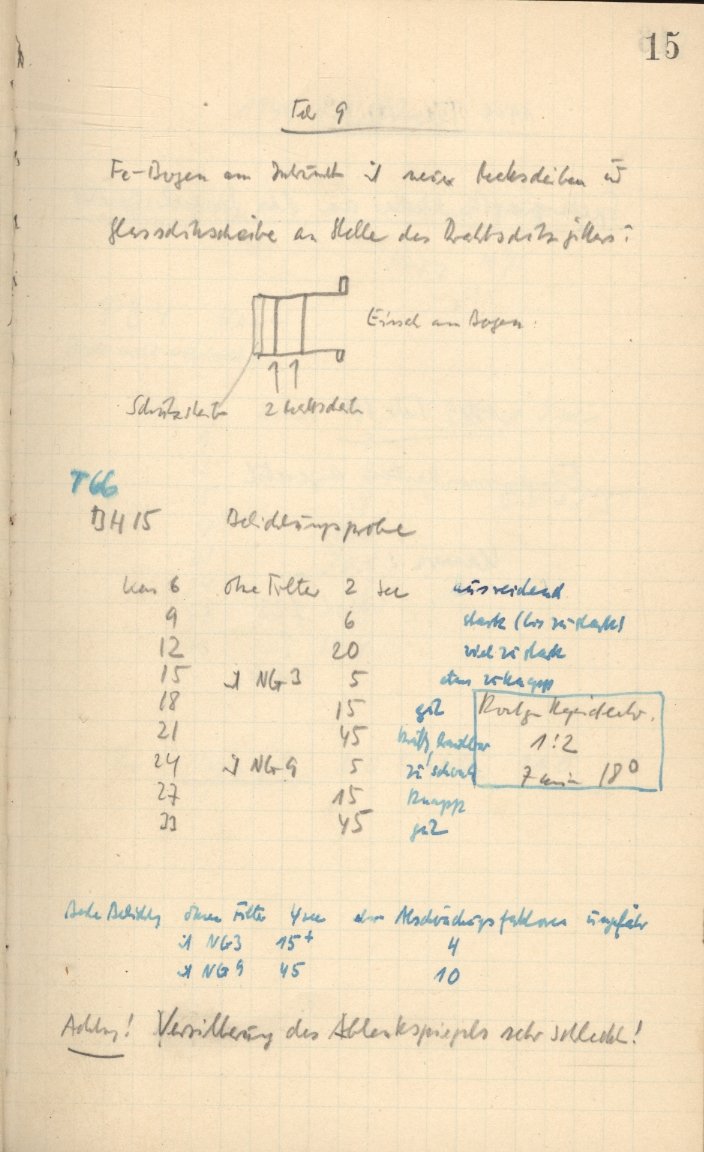 15
Feb 9
Fe-Bogen am
Glasschutzscheibe an Stelle des Drahtschutzgitters:
am Bogen
Schutzscheibe 2
T66
BH 15 Belichtungsprobe
6 ohne Filter 2 sec ausreichend
9 6 stark (bis zu stark)
12 20 viel zu stark
15 NG3 5 etwas zu knapp
18 15 gut
21 45
24 NG9 5 zu schwach
27 15 knapp
33 45 gut
Rapidentw.
1:2
7 min 18°
Beste Belichtg ohne Filter 4 sec also Abschwächungsfaktoren ungefähr
NG3 15+ 4
NG9 45 10
Achtung! Versilberung des Ablenkspiegels sehr schlecht!